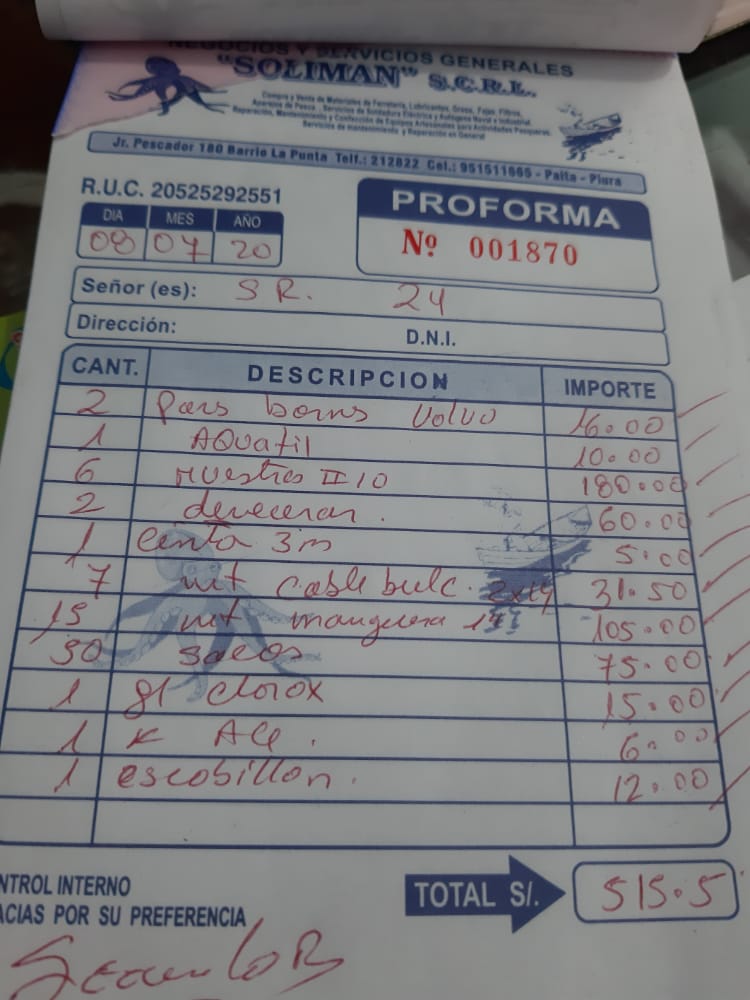 NEGOCIOS Y SERVICIOS GENERALES
"SOLIMAN" S.C.R.L.
Compra y Venta de Materiales de Ferretería, Lubricantes, Grasa, Fajas, Filtros,
Aparejos de Pesca, Servicios de Soldadura Eléctrica y Autógena Naval e Industrial.
Reparación, Mantenimiento y Confección de Equipos Artesanales para Actividades Pesqueras.
Servicios de mantenimiento y Reparación en General
Jr. Pescador 180 Barrio La Punta Telf.: 212822 Cel.: 951511665 - Paita - Piura
R.U.C. 20525292551
DIA MES AÑO
08 07 20
PROFORMA
Nº 001870
Señor (es): SR. 24
Dirección: D.N.I.
CANT. DESCRIPCION IMPORTE
2 Pars borns Volvo 16.00
1 AQuafil 10.00
6 II 10 180.00
2 60.00
1 Cinta 3m 5.00
7 mt cable bulc. 2x14 31.50
15 mt manguera 1" 105.00
30 sacos 75.00
1 gl clorox 15.00
1 K Ace. 6.00
1 escobillon. 12.00
NTROL INTERNO
ACIAS POR SU PREFERENCIA
TOTAL S/. 515.5